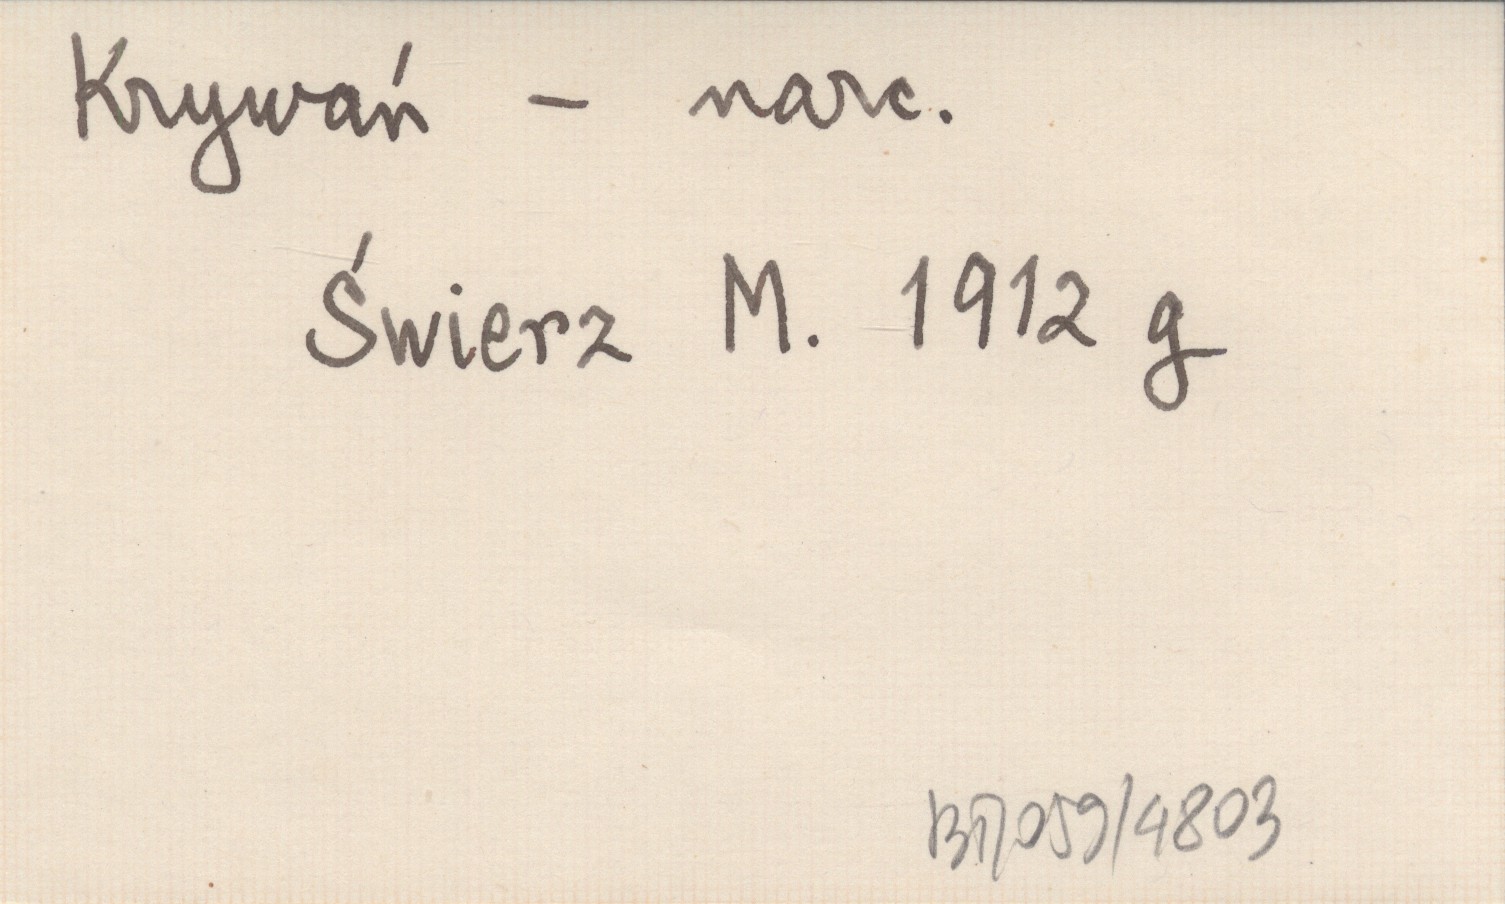 Krywań - narc.
Świerz M. 1912 g
059/4803